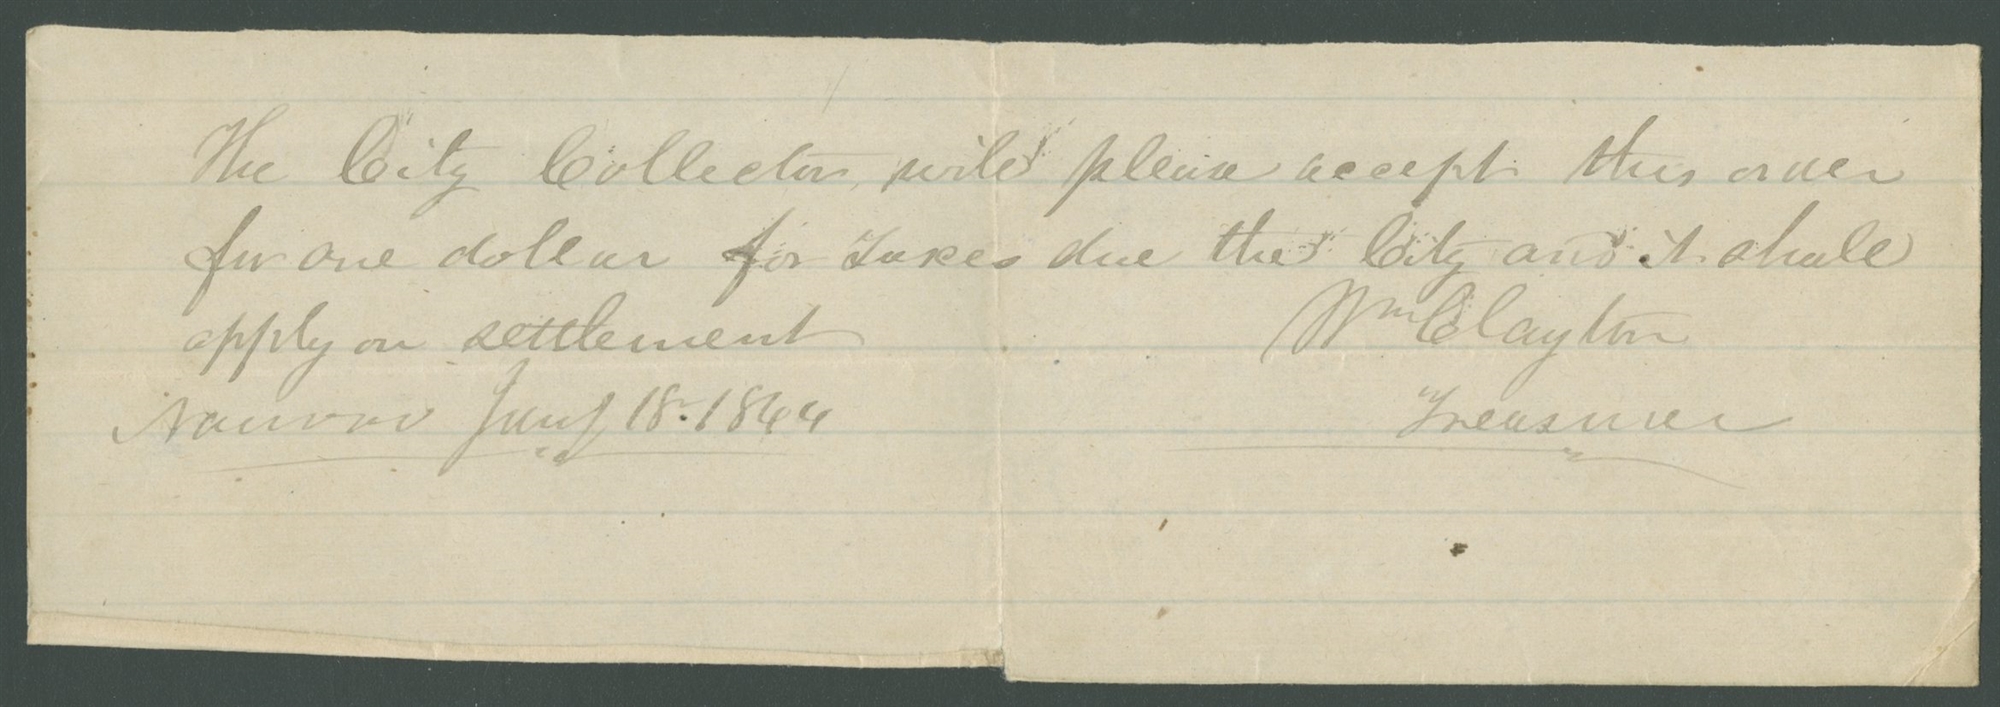 The City Collector will please accept this order
for one dollar for taxes due the City and it shall
apply on settlement
Wm Clayton
Nauvoo Jany 18. 1844
Treasurer